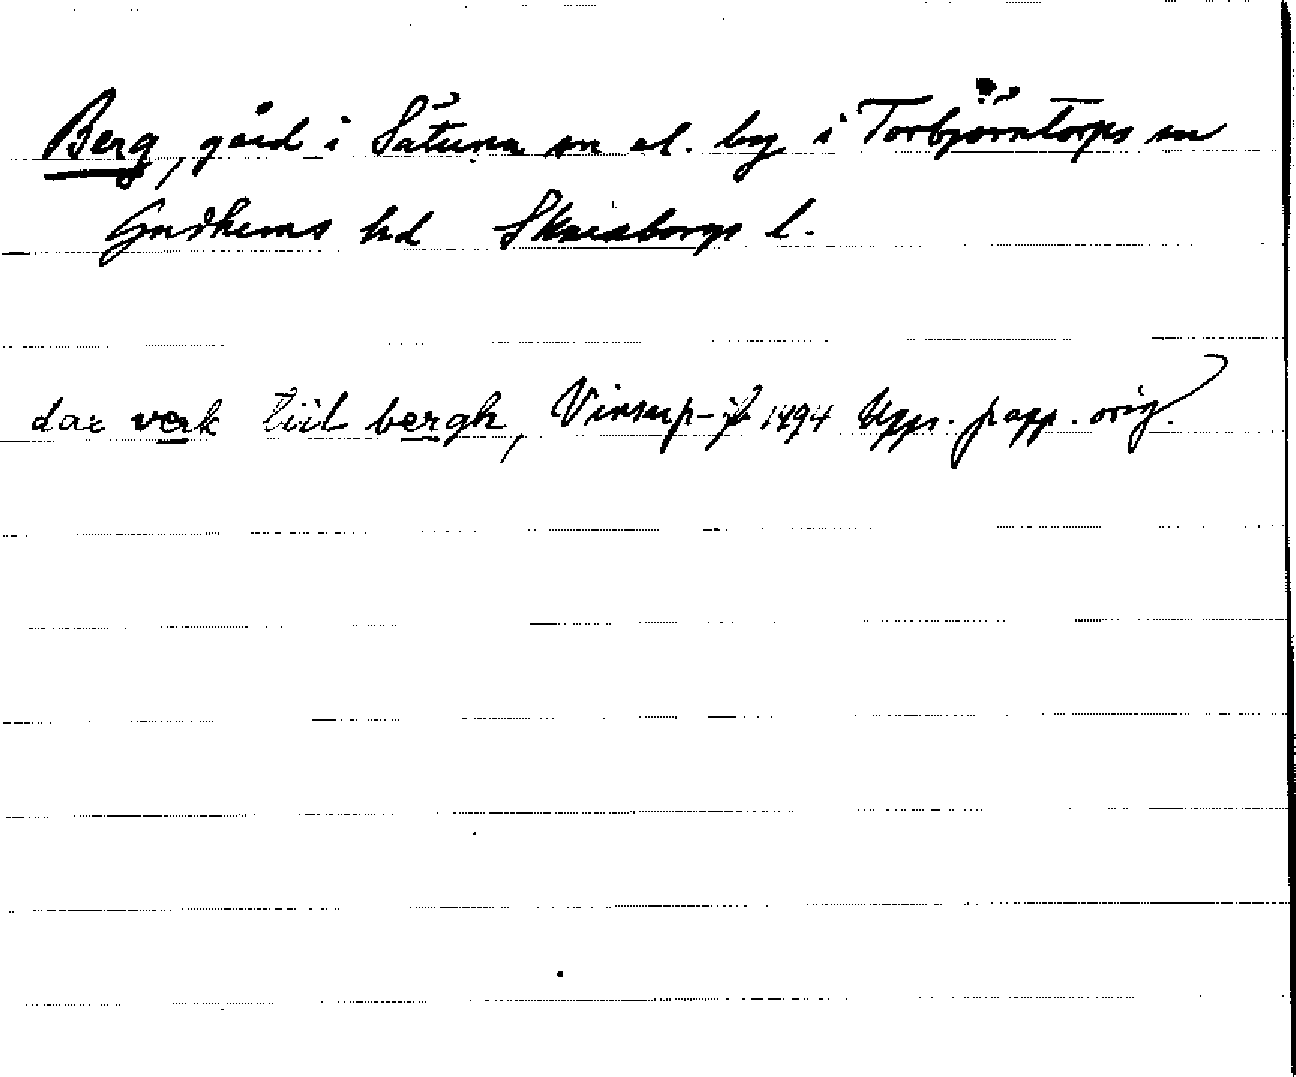 Berg, gård i Sätuna sn el. by i Torbjörntorps sn
Gudhems hd Skaraborgs l.
dar verk tiil bergh, Vinsrup- 1494 Upps. papp. orig.